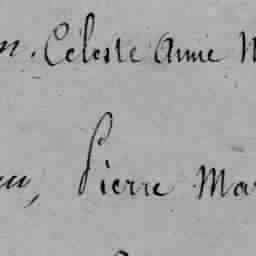 n. Céleste Anne M
u, Pierre Mar